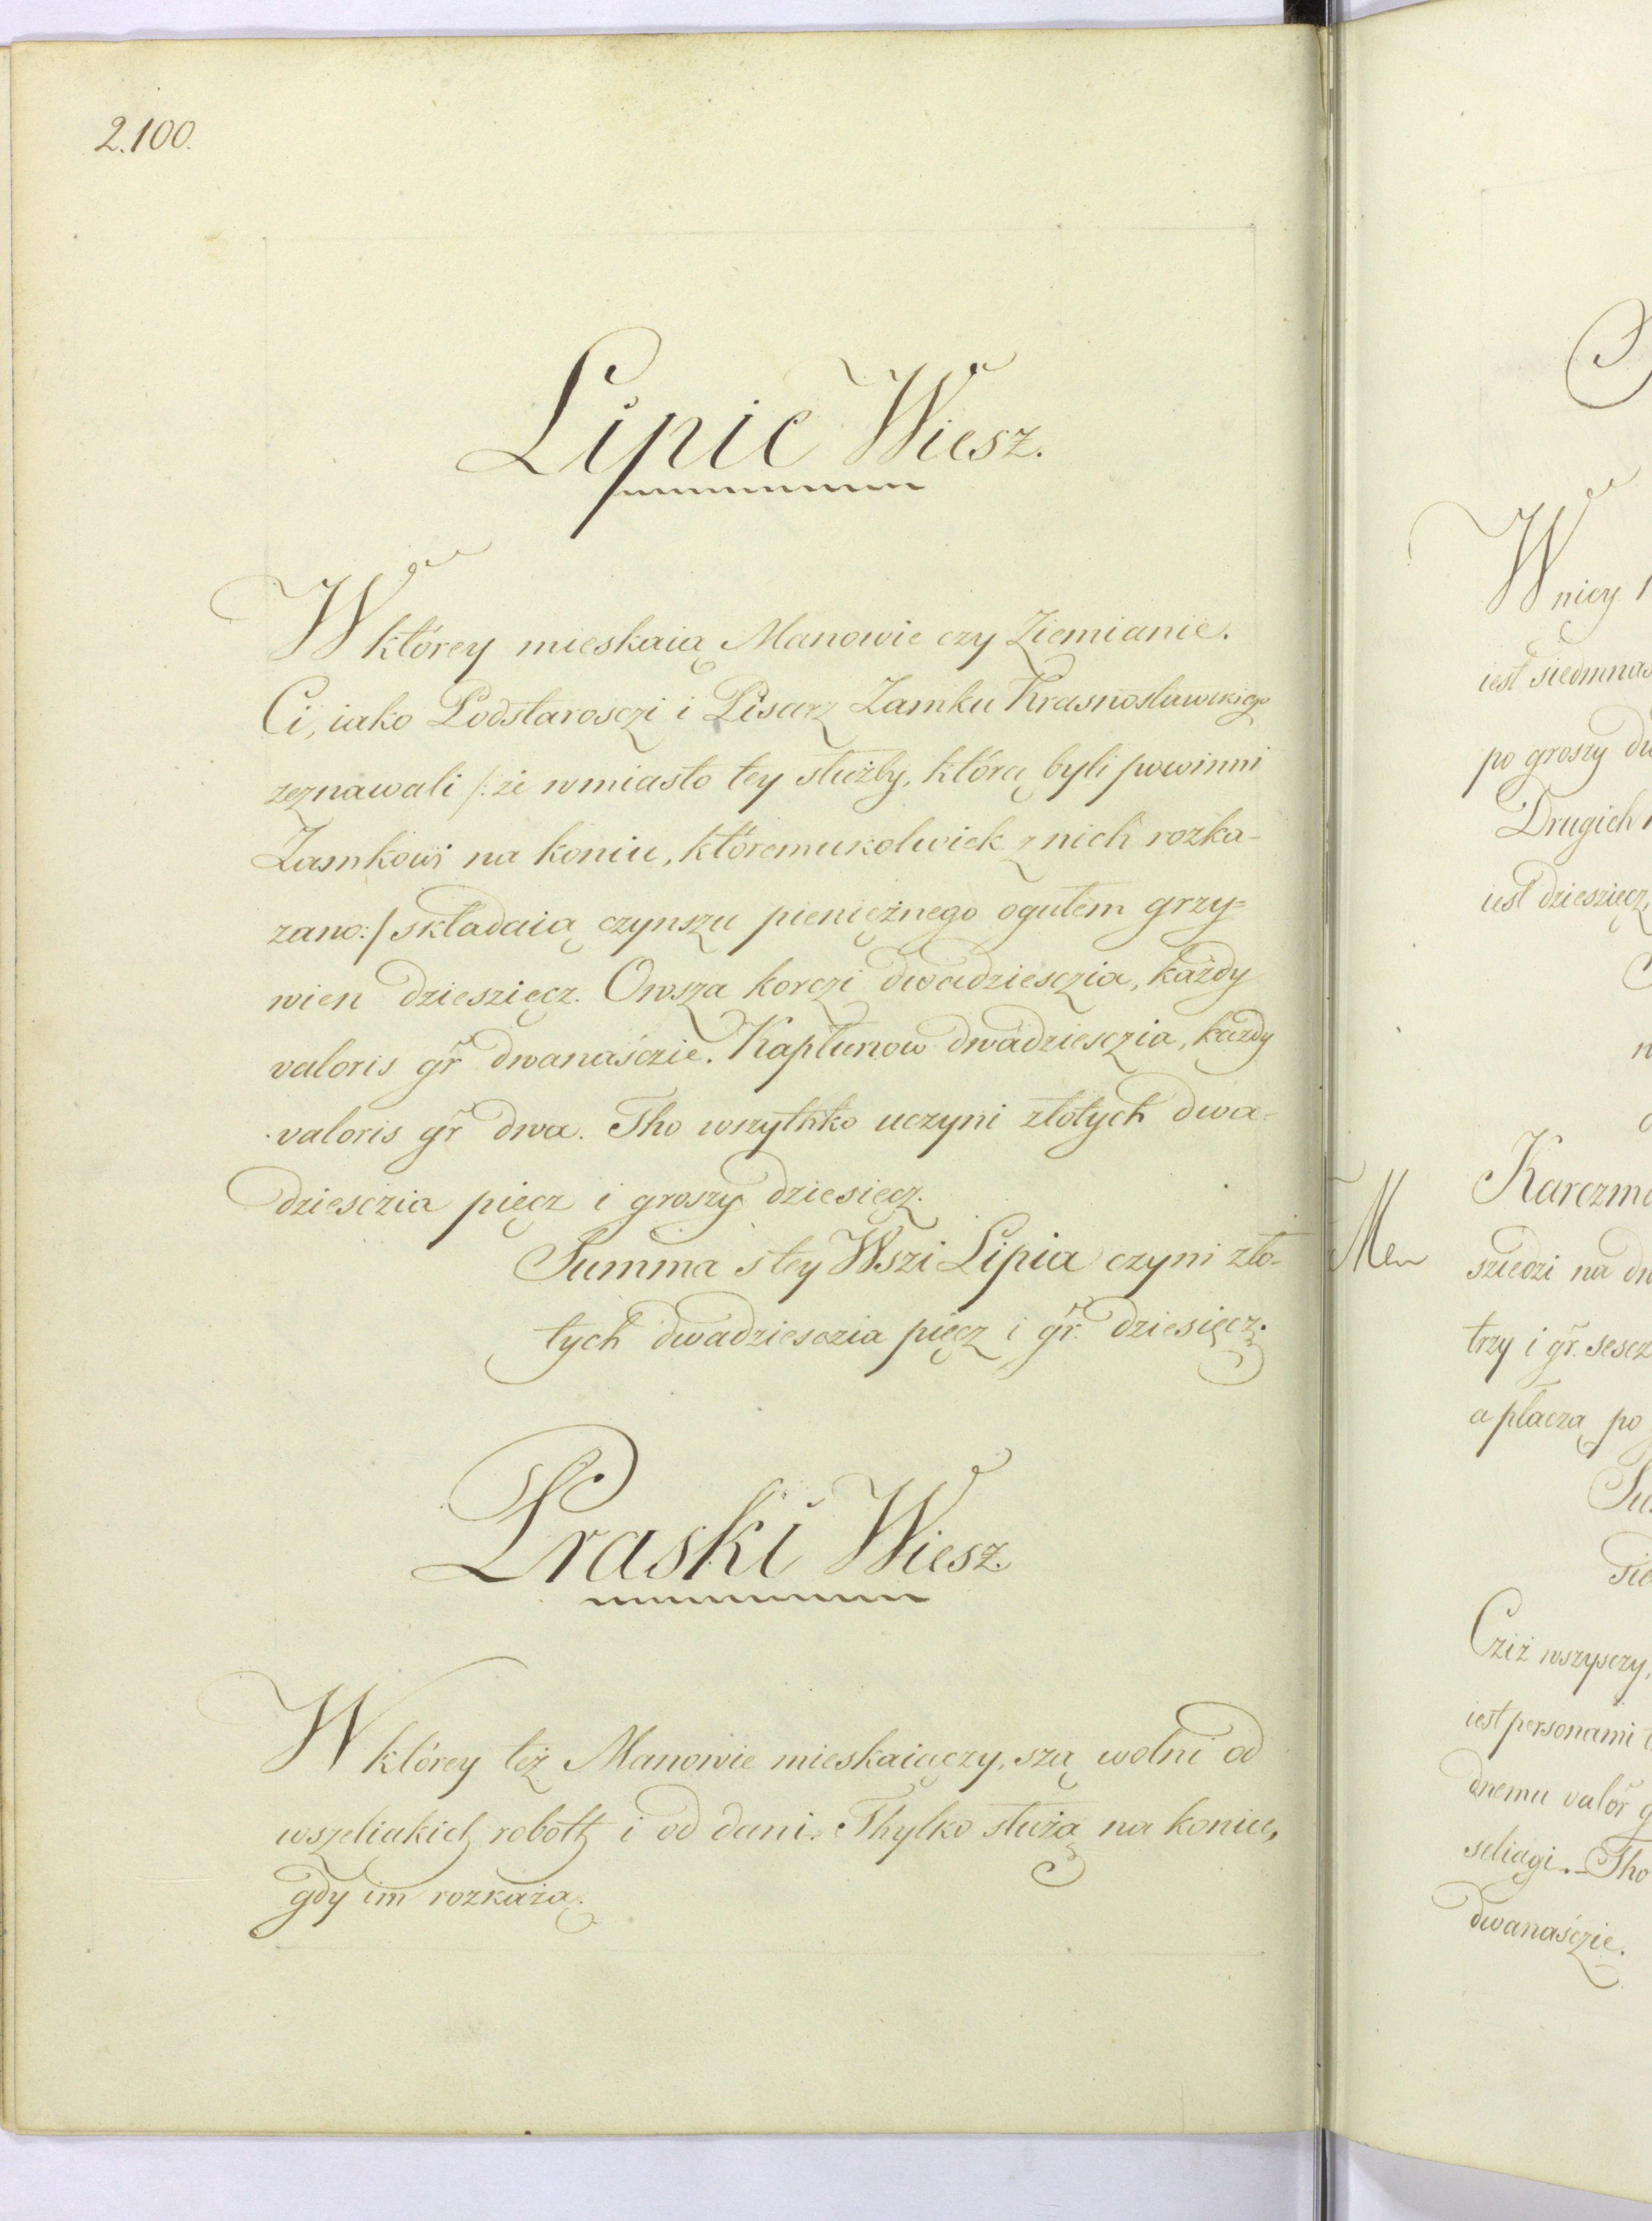 2.100.
Lipie Wiesz.
W którey mieskaią Manowie czy Ziemianie.
Ci, iako Podstarosczi i Pisarz Zamku Krasnostawskiego
zeznawali /: że wmiasto tey służby, którą byli powinni
Zamkowi na koniu, któremukolwiek z nich rozka-
zano :/ składaią czynszu pieniężnego ogułem grzy=
wien dzieszięcz. Owsza korczi dwadziesczia, każdy
valoris gr dwanaśczie. Kapłunow dwadziesczia, każdy
valoris gr dwa. Tho wszythko uczyni złotych dwa-
dziesczia pięcz i groszy dziesięcz.
Summa s tey Wszi Lipia czyni zło-
tych dwadziesczia pięcz i gr. dziesięcz.
Praski Wiesz.
W którey też Manowie mieskaiączy, szą wolni od
wszeliakich robotł i od dani. Thylko służą na koniu,
gdy im rozkażą.
W niey
iest siedmnas
po groszy dw
Drugich
iest dzieszięcz,
Karczm
sziedzi na dw
trzy i gr. sescz
a płaczą po
Su
sie
Cziż wszysczy,
iest personami
dnemu valor g
seliagi. Tho
dwanaśczie.